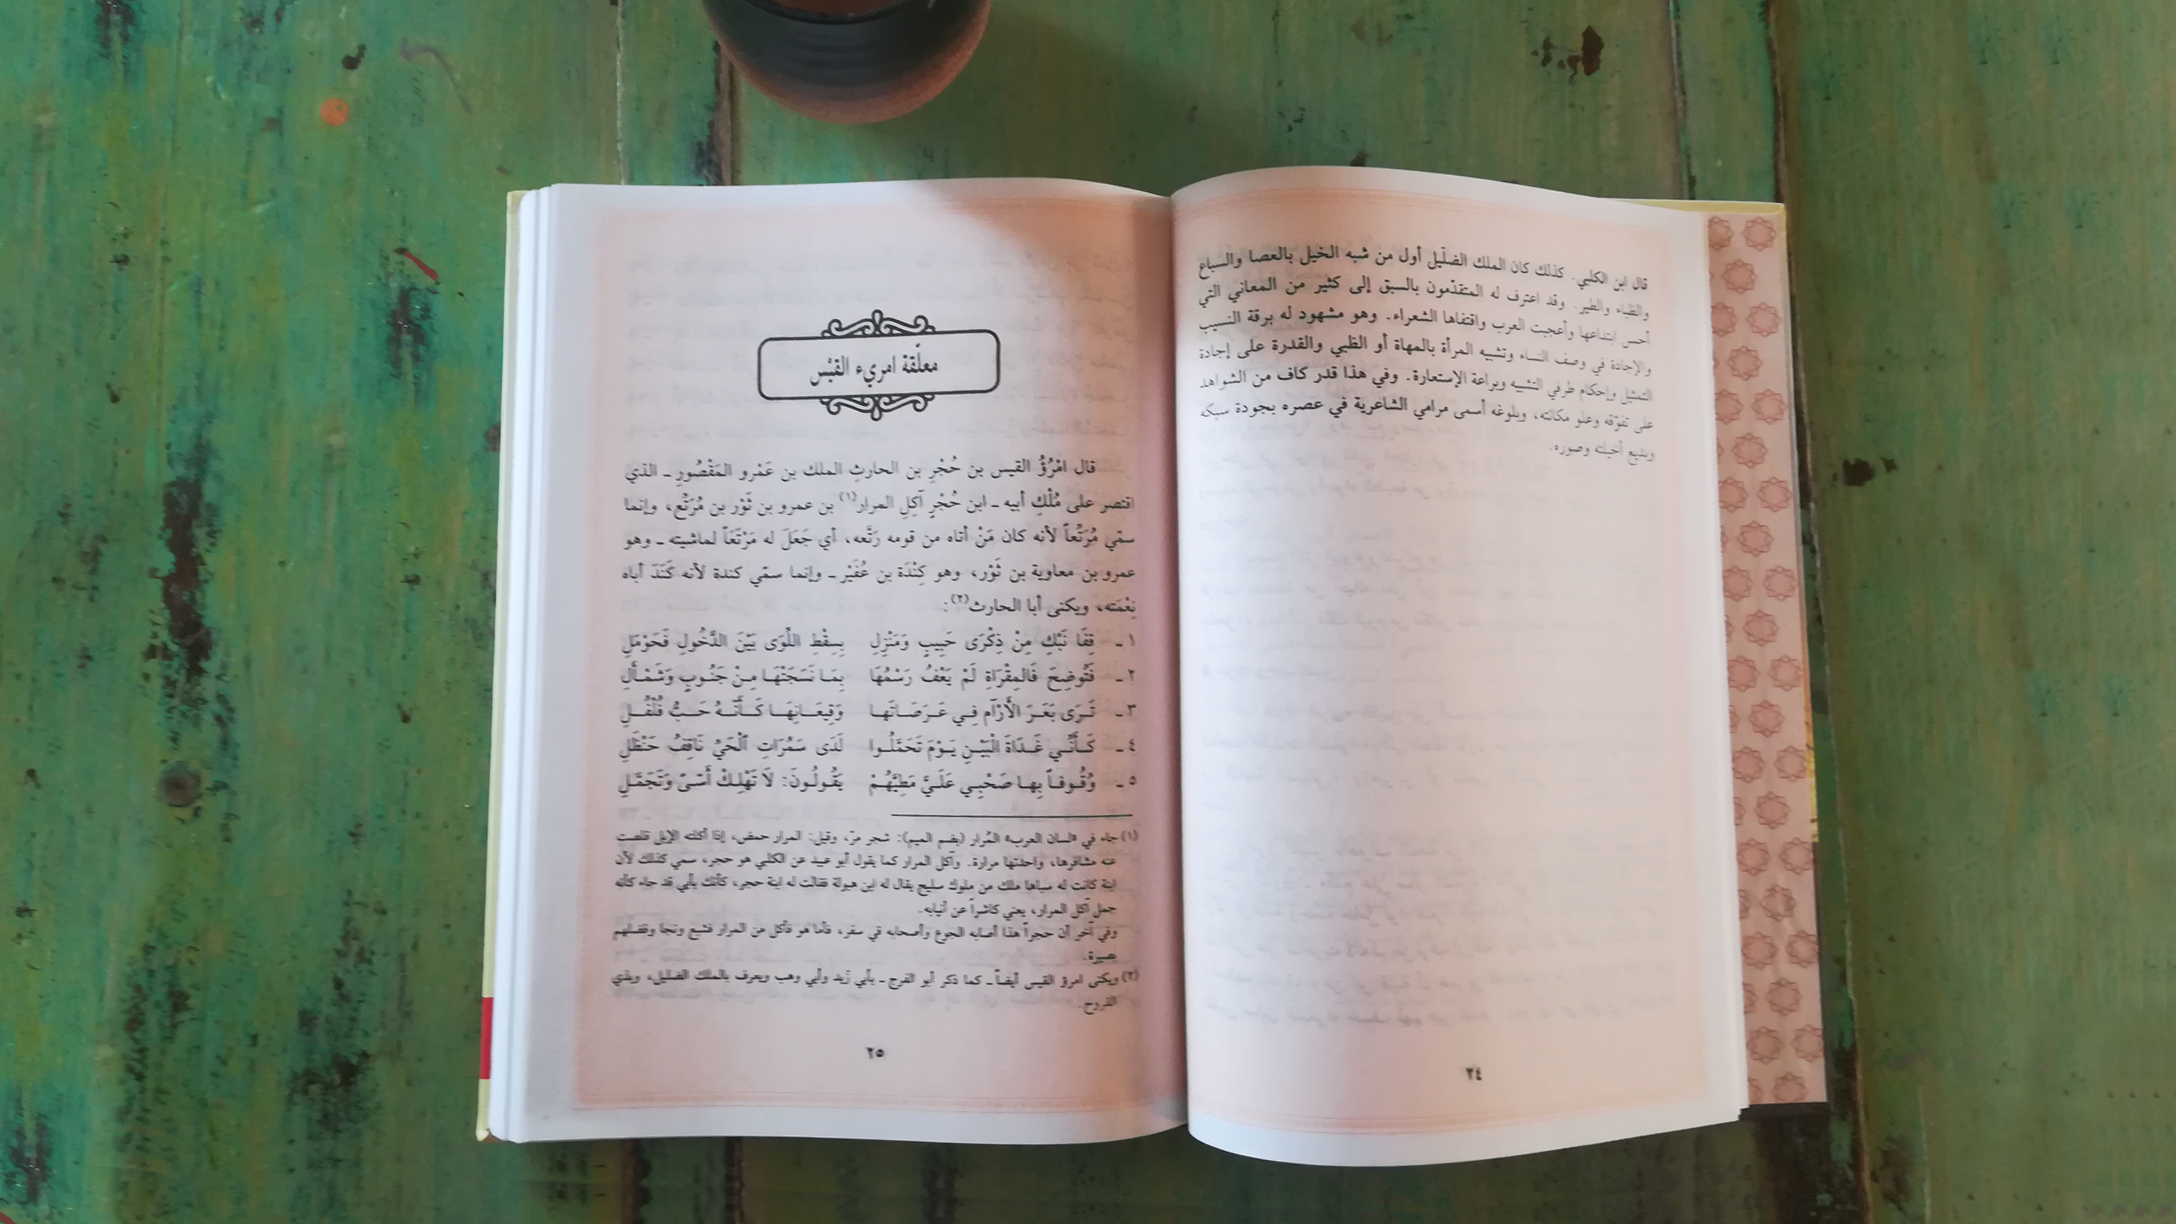 قال ابن الكلبي. كذلك كان الملك الضلّيل أول من شبه الخيل بالعصا والسباع
والظباء والطير. وقد اعترف له المتقدّمون بالسبق إلى كثير من المعاني التي
أحسن ابتداعها وأعجبت العرب واقتفاها الشعراء. وهو مشهود له برقة النسيب
والإجادة في وصف النساء وتشبيه المرأة بالمهاة أو الظبي والقدرة على إجادة
التمثيل وإحكام طرفي التشبيه وبراعة الإستعارة. وفي هذا قدر كاف من الشواهد
على تفوّقه وعلو مكانته، وبلوغه أسمى مرامي الشاعرية في عصره بجودة سبكه
وبديع أخيلته وصوره.
٢٤
معلّقة امريء القيْس
قال امْرُؤُ القيس بن حُجْرِ بن الحارثِ الملك بن عَمْرو المَقْصُورِ ـ الذي
اقتصر على مُلْكِ أبيه ـ ابن حُجْرٍ آكِلِ المرار(١) بن عمرو بن ثَوْر بن مُرَتِّع، وإنما
سمّي مُرَتِّعاً لأنه كان مَنْ أتاه من قومه رَتَّعه، أي جَعَلَ له مَرْتَعَاً لماشيته ـ وهو
عمرو بن معاوية بن ثَوْر، وهو كِنْدَة بن عُفَيْر ـ وإنما سمّي كندة لأنه كَنَدَ أباه
نِعْمَته، ويكنى أبا الحارث(٢):
١ ـ قِفَا نَبْكِ مِنْ ذِكْرَى حَبِيبٍ وَمَنْزِلِ بِسِقْطِ اللِّوَى بَيْنَ الدَّخُولِ فَحَوْمَلِ
٢ ـ فَتُوضِحَ فَالمِقْرَاةِ لَمْ يَعْفُ رَسْمُهَا بِمَا نَسَجَتْهَا مِنْ جَنُوبٍ وَشَمْأَلِ
٣ ـ تَرَى بَعَرَ الأَرْآمِ فِي عَرَصَاتَهَا وَقِيعَانِهَا كَأَنَّهُ حَبُّ فُلْفُلِ
٤ ـ كَأَنِّي غَدَاةَ الْبَيْنِ يَوْمَ تَحَمَّلُوا لَدَى سَمُرَاتِ الْحَيِّ نَاقِفُ حَنْظَلِ
٥ ـ وُقُوفاً بِهَا صَحْبِي عَلَيَّ مَطِيَّهُمْ يَقُولُونَ: لاَ تَهْلِكْ أَسًى وَتَجَمَّلِ
(١) جاء في «لسان العرب» المُرار (بضم الميم): شجر مرّ، وقيل: المرار حمض، إذا أكلته الإبل قلصت
عنه مشافرها، واحدتها مرارة. وآكل المرار كما يقول أبو عبيد عن الكلبي هو حجر، سمي كذلك لأن
ابنة كانت له سباها ملك من ملوك سليح يقال له ابن هبولة فقالت له ابنة حجر، كأنك بأبي قد جاء كأنه
جمل آكل المرار، يعني كاشراً عن أنيابه.
وفي آخر أن حجراً هذا أصابه الجوع وأصحابه في سفر، فأما هو فأكل من المرار فشبع ونجا وفضلهم
(٢) ويكنى امرؤ القيس أيضاً ـ كما ذكر أبو الفرج ـ بأبي زيد وأبي وهب ويعرف بالملك الضليل، وبذي
القروح.
٢٥